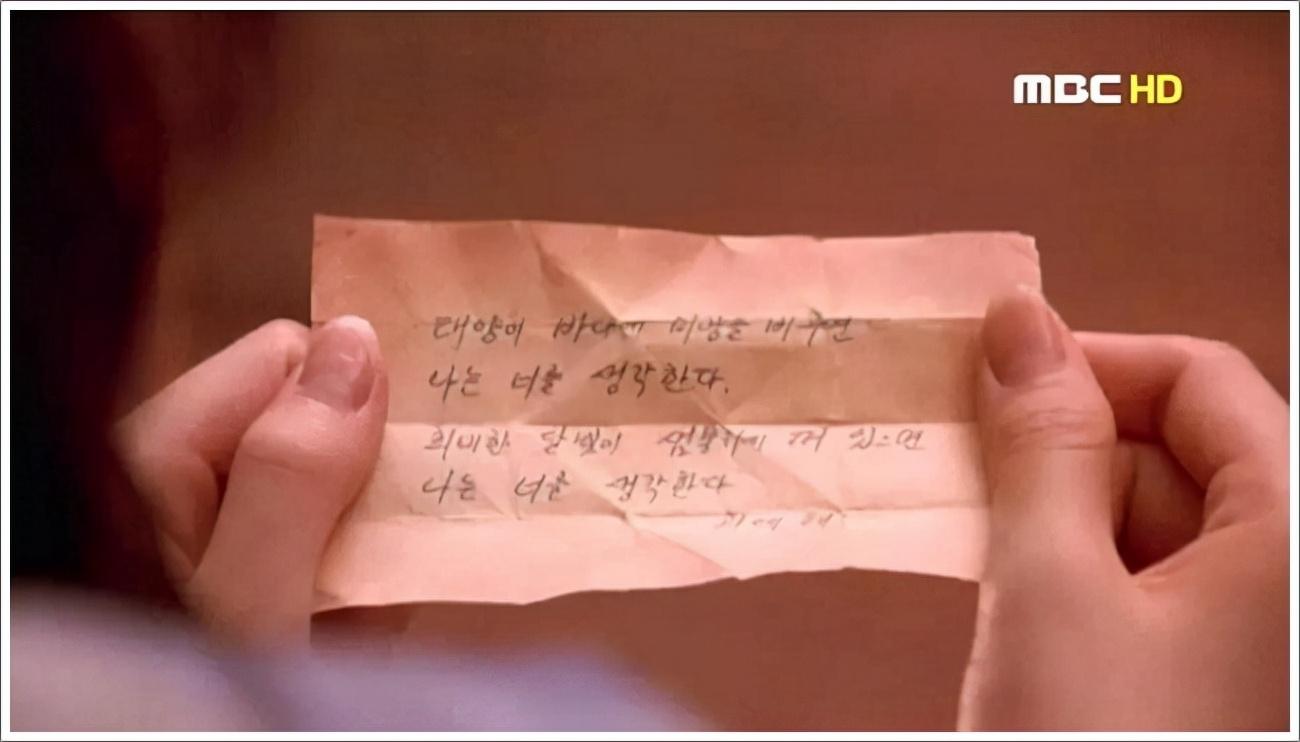 MBC HD
태양이 바다에 미광을 비추면
나는 너를 생각한다.
희미한 달빛이 떠 있으면
나는 너를 생각한다